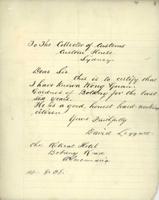 To The Collector of Customs
Custom House
Sydney.
Dear Sir
this is to certify that
I have known Wong
Gardner of Botany for the last
six years.
He is a good, honest hard working
citizen.
Yours Faithfully
David
The Hotel
Botany Road
Alexandria